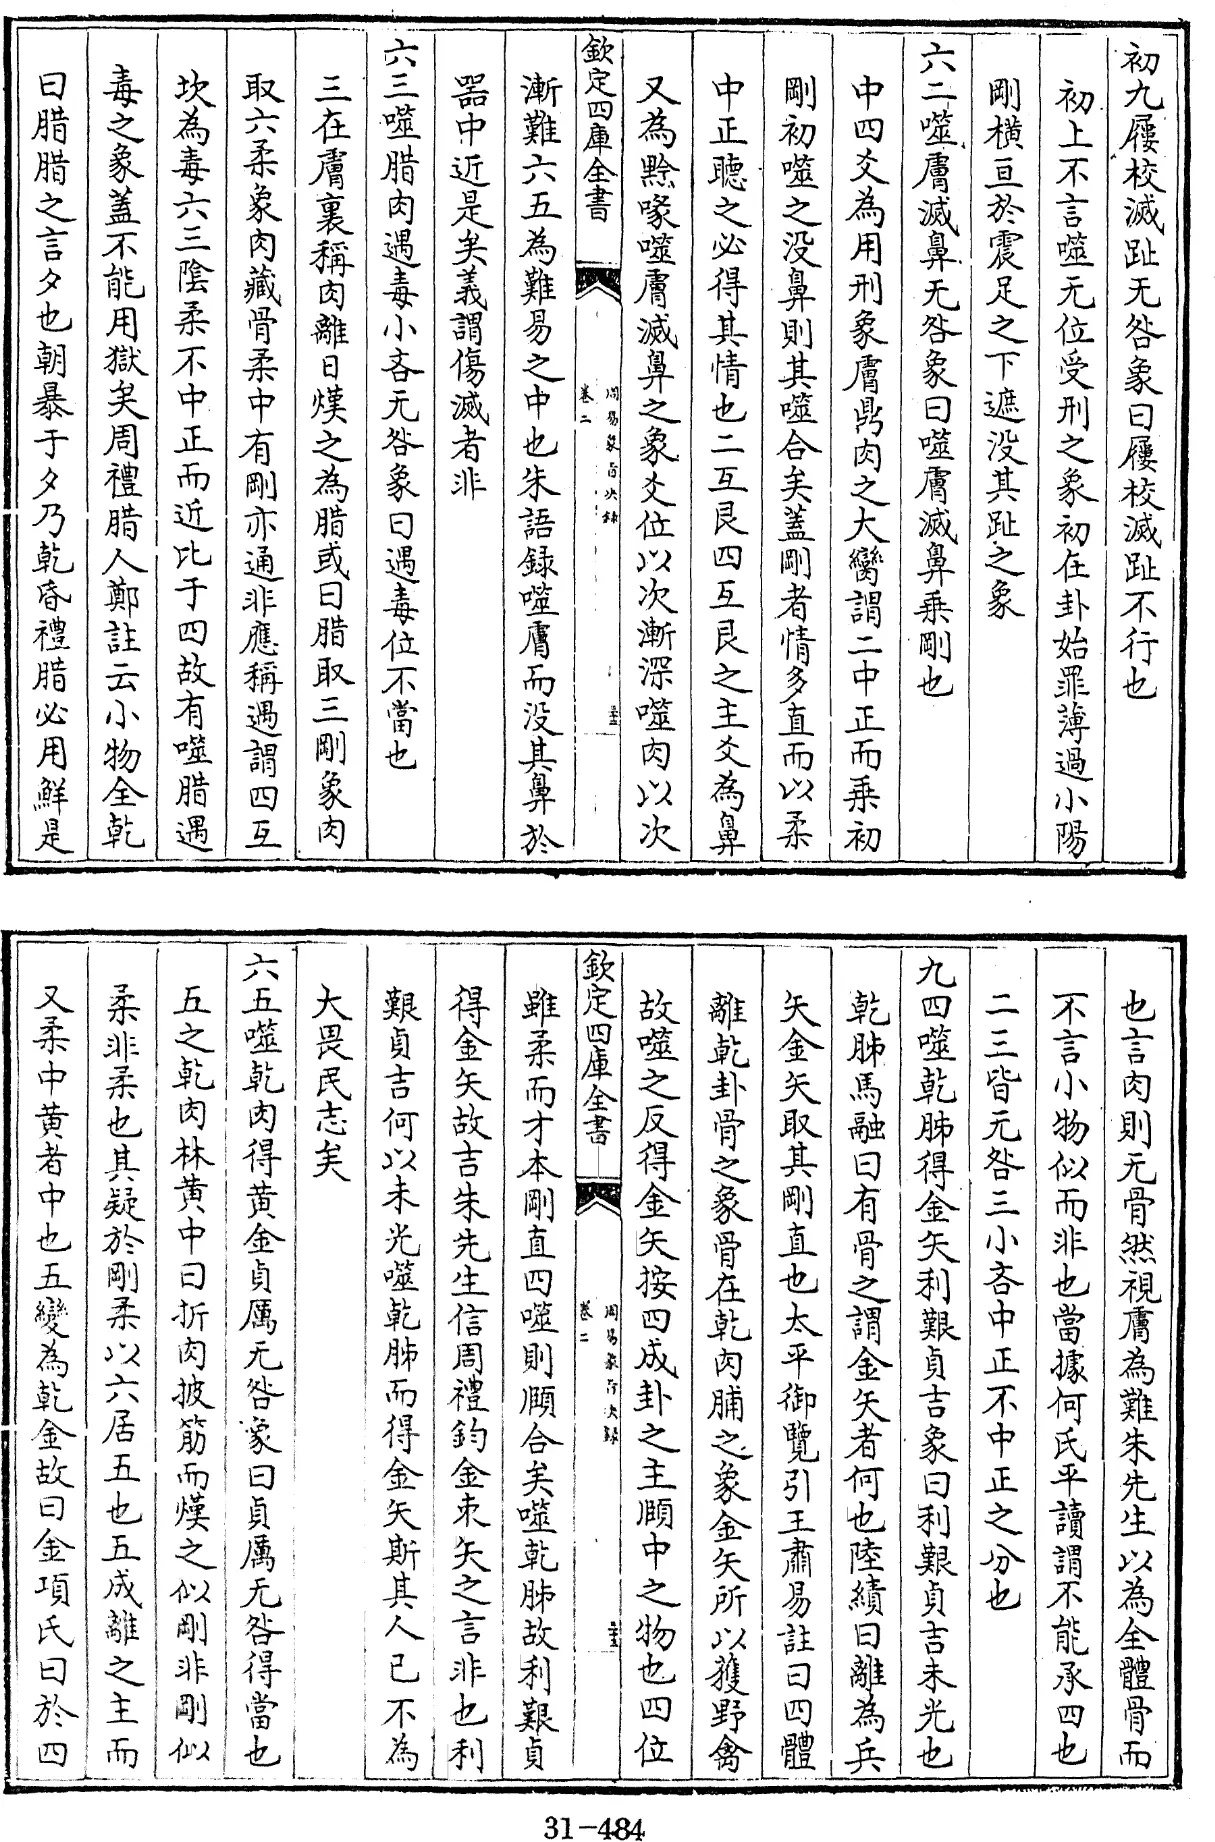 初九屨校滅趾无咎象曰屨校滅趾不行也
初上不言噬无位受刑之象初在卦始罪薄過小陽
剛橫亘於震足之下遮没其趾之象
六二噬膚滅鼻无咎象曰噬膚滅鼻乗剛也
中四爻為用刑象膚鼎肉之大臠謂二中正而乗初
剛初噬之没鼻則其噬合矣蓋剛者情多直而以柔
中正聽之必得其情也二互艮四互艮之主爻為鼻
又為黔喙噬膚滅鼻之象爻位以次漸深噬肉以次
欽定四庫全書
周易象旨決録
卷二
漸難六五為難易之中也朱語録噬膚而没其鼻於
器中近是矣義謂傷滅者非
六三噬腊肉遇毒小吝无咎象曰遇毒位不當也
三在膚裏稱肉離日熯之為腊或曰腊取三剛象肉
取六柔象肉藏骨柔中有剛亦通非應稱遇謂四互
坎為毒六三陰柔不中正而近比于四故有噬腊遇
毒之象蓋不能用獄矣周禮腊人鄭註云小物全乾
曰腊腊之言夕也朝暴于夕乃乾昏禮腊必用鮮是
也言肉則无骨然視膚為難朱先生以為全體骨而
不言小物似而非也當據何氏平讀謂不能承四也
二三皆无咎三小吝中正不中正之分也
九四噬乾胏得金矢利艱貞吉象曰利艱貞吉未光也
乾胏馬融曰有骨之謂金矢者何也陸績曰離為兵
矢金矢取其剛直也太平御覽引王肅易註曰四體
離乾卦骨之象骨在乾肉脯之象金矢所以獲野禽
故噬之反得金矢按四成卦之主頤中之物也四位
欽定四庫全書
周易象旨決録
卷二
雖柔而才本剛直四噬則頤合矣噬乾胏故利艱貞
得金矢故吉朱先生信周禮鈞金束矢之言非也利
艱貞吉何以未光噬乾胏而得金矢斯其人已不為
大畏民志矣
六五噬乾肉得黄金貞厲无咎象曰貞厲无咎得當也
五之乾肉林黄中曰折肉披筋而熯之似剛非剛似
柔非柔也其疑於剛柔以六居五也五成離之主而
又柔中黄者中也五變為乾金故曰金項氏曰於四
31-484